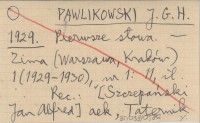 PAWLIKOWSKI J. G. H.
1929. Pierwsze słowa. —
Zima (Warszawa, Kraków)
1 (1929-1930), nr 1: 11, il
Rec.: [Szczepański
Jan Alfred] aek. Taternik